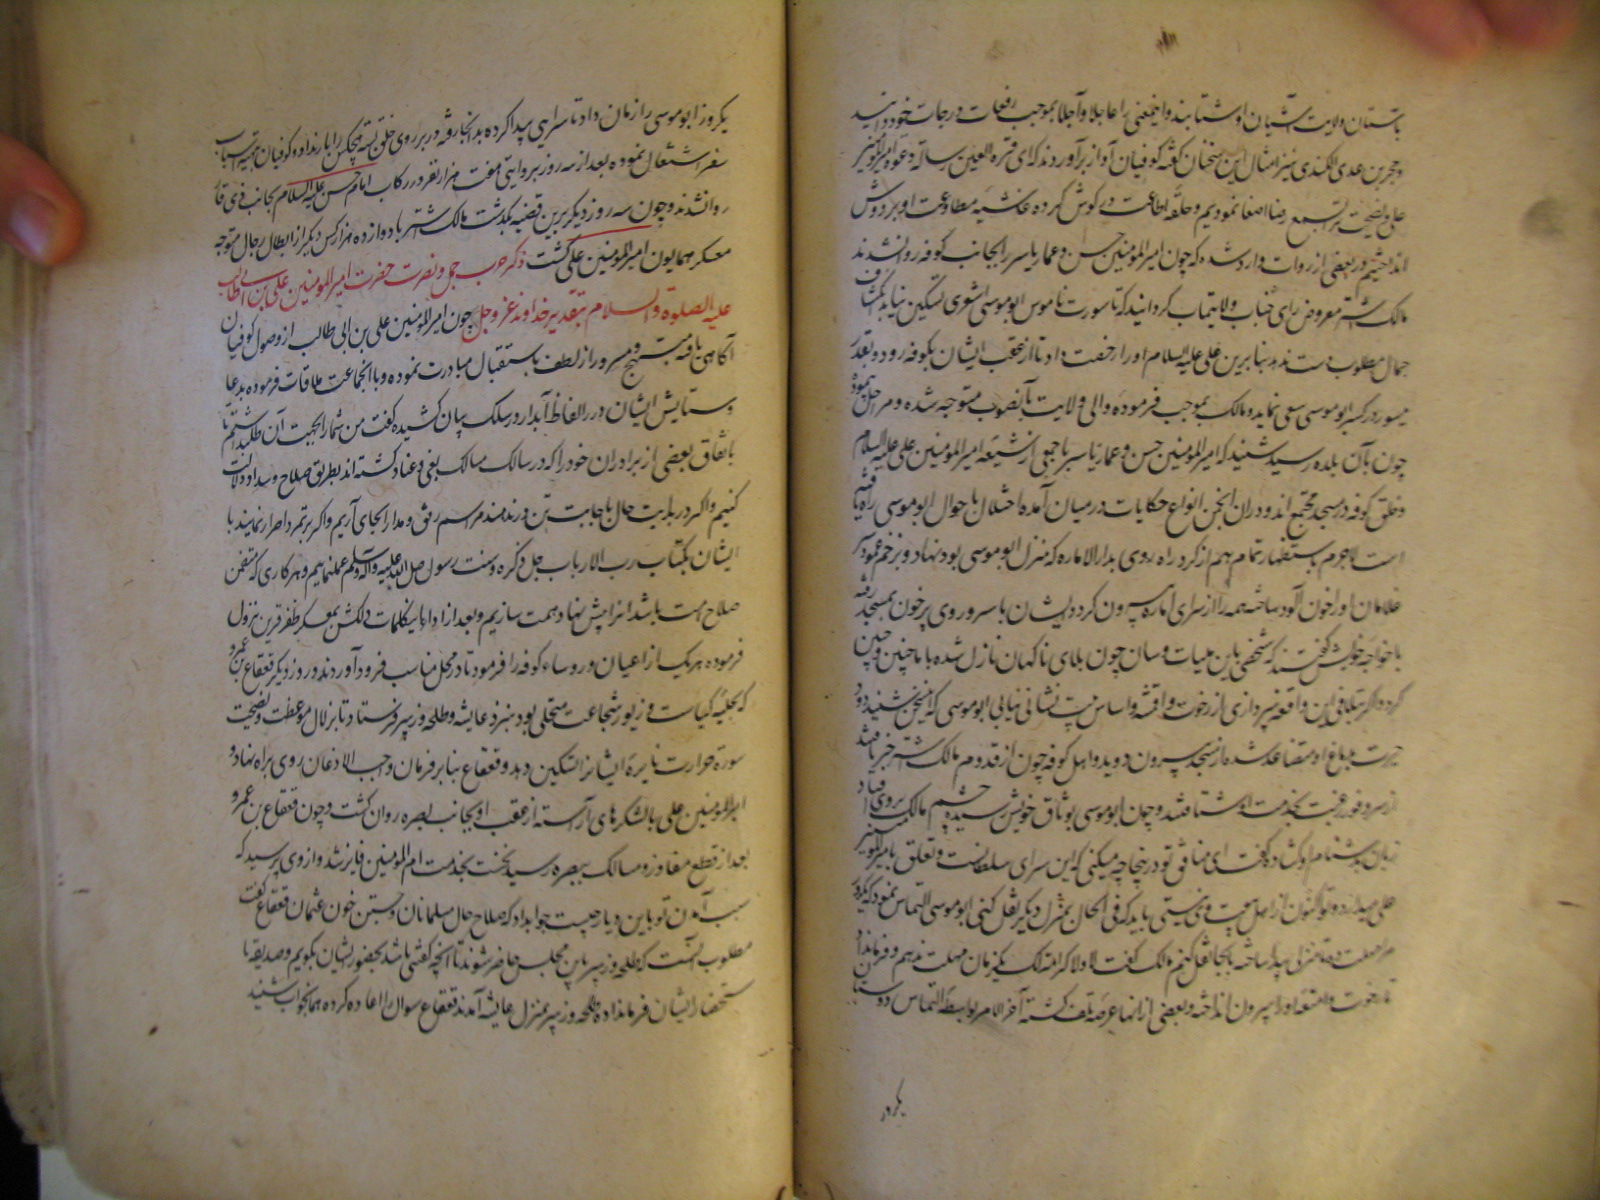 باستان ولایت آشیان او شتابند و اینمعنی را عاجلا و آجلا بموجب رفعات درجات خود دانید
و حجر بن عدی الکندی نیز امثال این سخنان گفته کوفیان آواز برآوردند که ای قرة العین رسالة دعوة امیر المؤمنین
علی و نصیحت ترا بسمع رضا اصغا نمودیم و حلقه اطاعت در گوش کرده غاشیه مطاوعت او بر دوش
انداختیم در بعضی از روات وارد شده که چون امیر المؤمنین حسن و عمار یاسر را بجانب کوفه روانه شدند
مالک اشتر معروض رای جناب ولایتمآب گردانید که تا سورت ناموس ابو موسی اشعری تسکین نیابد
جمال مطلوب دست ندهد بنابرین علی علیه السلام او را رخصت داد تا از عقب ایشان بکوفه رود و بقدر
میسور در کسر ابو موسی سعی نماید و مالک بموجب فرموده والی ولایت بآنصوب متوجه شده و مراحل پیموده
چون بآن بلده رسید شنید که امیر المؤمنین حسن و عمار یاسر با جمعی از شیعه امیر المؤمنین علی علیه السلام
و خلق کوفه در مسجد مجتمع اند و در آن انجمن انواع حکایات در میان آمده اختلال باحوال ابو موسی راه یافته
است لاجرم باستظهار تمام هم از گرد راه روی بدار الاماره که منزل ابو موسی بود نهاد و بزخم عمود
غلامان او را خون آلود ساخته همه را از سرای اماره بیرون کرد و ایشان با سر و روی پر خون بمسجد رفته
با خواجه خویش گفتند که شخصی باین هیات و سان چون بلای ناگهان نازل شده با ما چنین و چنین
کرد و اگر بتلافی این واقعه نپردازی از رخوت و اقمشه و اساس بیت نشانی نیابی ابو موسی که این سخن شنید دود
حیرت بدماغ او متصاعد شده از مسجد بیرون دوید و اهل کوفه چون از قدوم مالک اشتر خبر یافتند
از سر وفور رغبت بخدمت او شتافتند و چون ابو موسی بوثاق خویش رسید چشم مالک بروی افتاد
زبان بدشنام او گشاده گفت ای منافق تو در اینجا چه میکنی که این سرای سلطانست و تعلق بامیر المؤمنین
علی میدارد و تو اکنون از اهل بیعت وی نیستی باید که فی الحال بمنزل دیگر نقل کنی ابو موسی التماس نمود که یکروز
مرا مهلت ده تا منزلی پیدا ساخته بآنجا نقل کنم مالک گفت لا و لا کرامة لک یکزمان مهلت ندهم و فرمان داد
تا رخوت و امتعه او را بیرون انداخته و بعضی از آنها عرصه تلف گشته آخر الامر بواسطه التماس دوستان
یکروز
یکروز ابو موسی را زمان داد تا سرایی پیدا کرده بدانجا رفته در بر روی خلق بسته هیچکس را بار نداد و کوفیان بتهیه اسباب
سفر اشتغال نموده بعد از سه روز بروایتی هفت هزار نفر در رکاب امام حسن علیه السلام بجانب ذی قار
روانشدند و چون سه روز دیگر برین قضیه بگذشت مالک اشتر با دوازده هزار کس دیگر از ابطال رجال متوجه
معسکر همایون امیر المؤمنین علی گشت ذکر حرب جمل و نصرت حضرت امیر المؤمنین علی بن ابی طالب
علیه الصلوة و السلام بتقدیر خداوند عز و جل چون امیر المؤمنین علی بن ابی طالب از وصول کوفیان
آگاهی یافت مبتهج و مسرور از لطف باستقبال مبادرت نموده و با انجماعت ملاقات فرموده بدعا
و ستایش ایشان درر الفاظ آبدار در سلک بیان کشیده گفت من شما را بجهت آن طلبیدم تا
باتفاق بعضی از برادران خود را که در سالک مسالک بغی و عناد گشته اند بطریق صلاح و سداد دلالت
کنیم و اگر در بدایت حال باجابت تن در ندهند مراسم رفق و مدارا بجای آریم و اگر بر تمرد اصرار نمایند با
ایشان بکتاب رب الارباب جل ذکره و سنت رسول صلی الله علیه و آله و سلم عمل نماییم و هر کاری که متضمن
صلاح امت باشد انرا پیش نهاد همت سازیم و بعد از ادا باین کلمات دلکش بمعسکر ظفر قرین نزول
فرموده هر یک از اعیان و روساء کوفه را فرمود تا در محل مناسب فرود آوردند و روز دیگر قعقاع بن عمرو
که بحلیه کیاست و زیور شجاعت متحلی بود بنزد عایشه و طلحه و زبیر فرستاد تا بزلال موعظت و نصیحت
سورة حرارت نایره ایشانرا تسکین دهد و قعقاع بنابر فرمان واجب الاذعان روی براه نهاد و
امیر المؤمنین علی با لشکرهای آراسته از عقب او بجانب بصره روان گشت و چون قعقاع بن عمرو
بعد از قطع مفاوز و مسالک ببصره رسید نخست بخدمت ام المؤمنین فایز شد و از وی پرسید که
سبب آمدن تو باین دیار چیست جوابداد که صلاح حال مسلمانان و جستن خون عثمان قعقاع گفت
مطلوب آنست که طلحه و زبیر باین مجلس حاضر شوند تا آنچه گفتنی باشد بحضور ایشان بگویم و صدیقه با
ستحضار ایشان فرمانداده طلحه و زبیر بمنزل عایشه آمدند قعقاع سوال را اعاده کرده همانجواب شنید